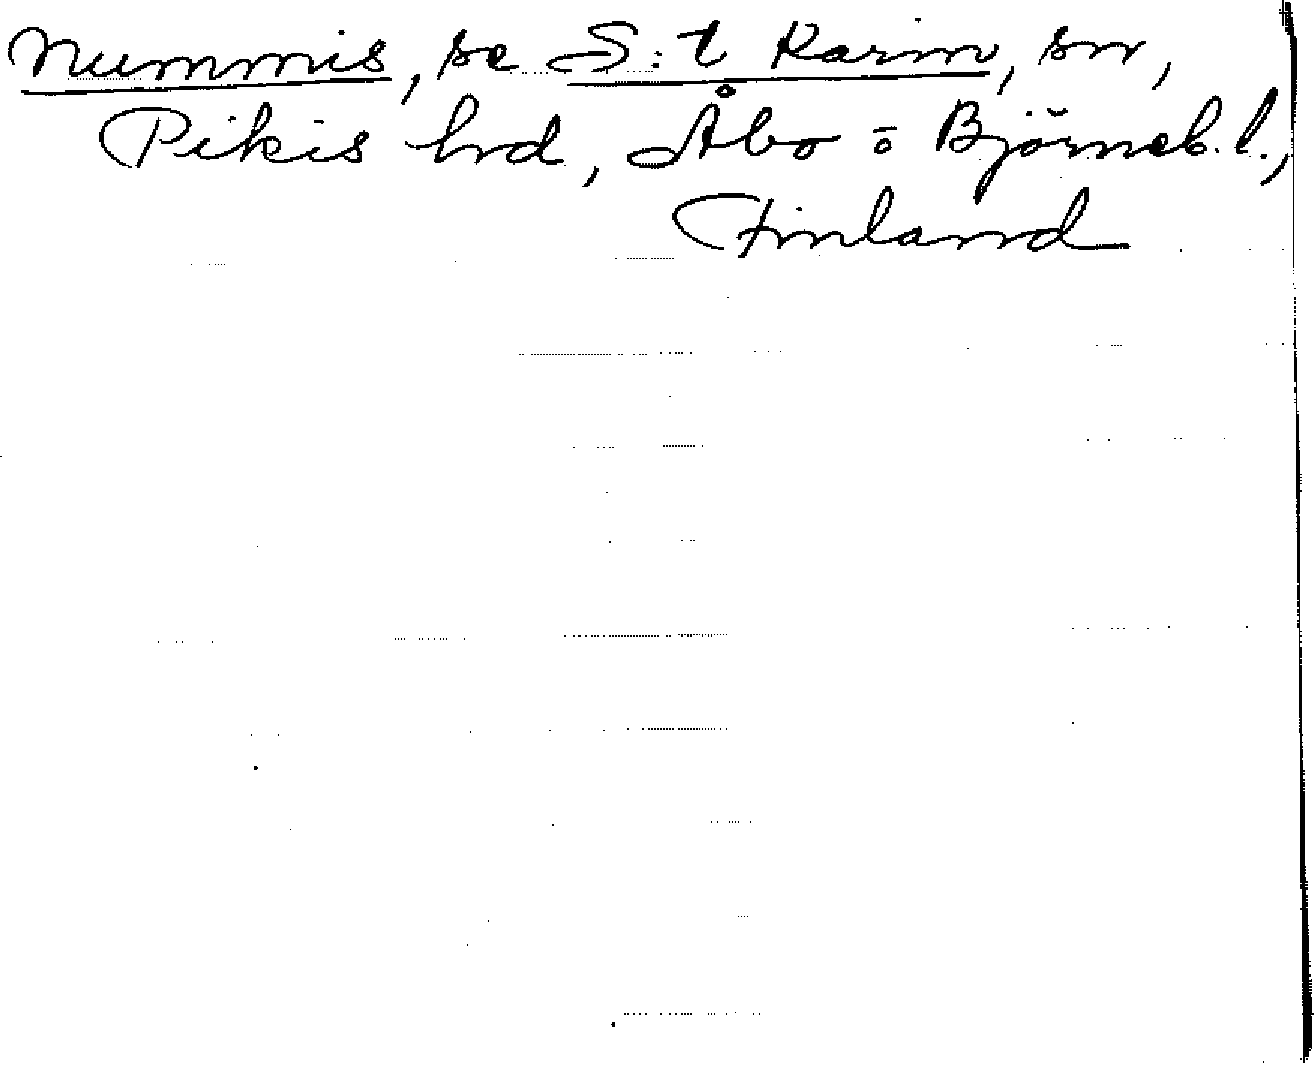 Nummis, se S:t Karin, sn,
Pikis hrd, Åbo o Björneb. l.,
Finland